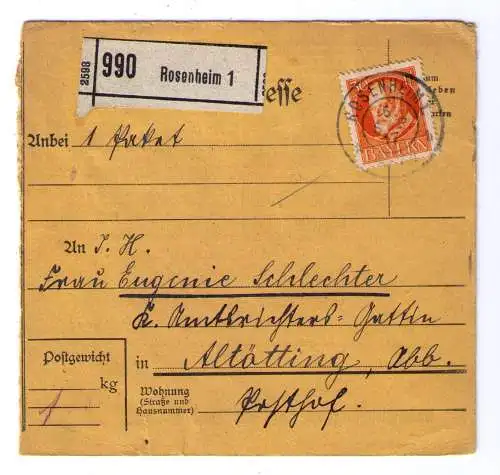 2598
990 Rosenheim 1
esse
ROSENHEIM
BAYERN
Anbei 1 Paket
An I. H.
Frau Eugenie Schlechter
K. Amtsrichters-Gattin
Postgewicht
kg
1
in Altötting, Obb.
Wohnung
(Straße und
Hausnummer)
Posthof.